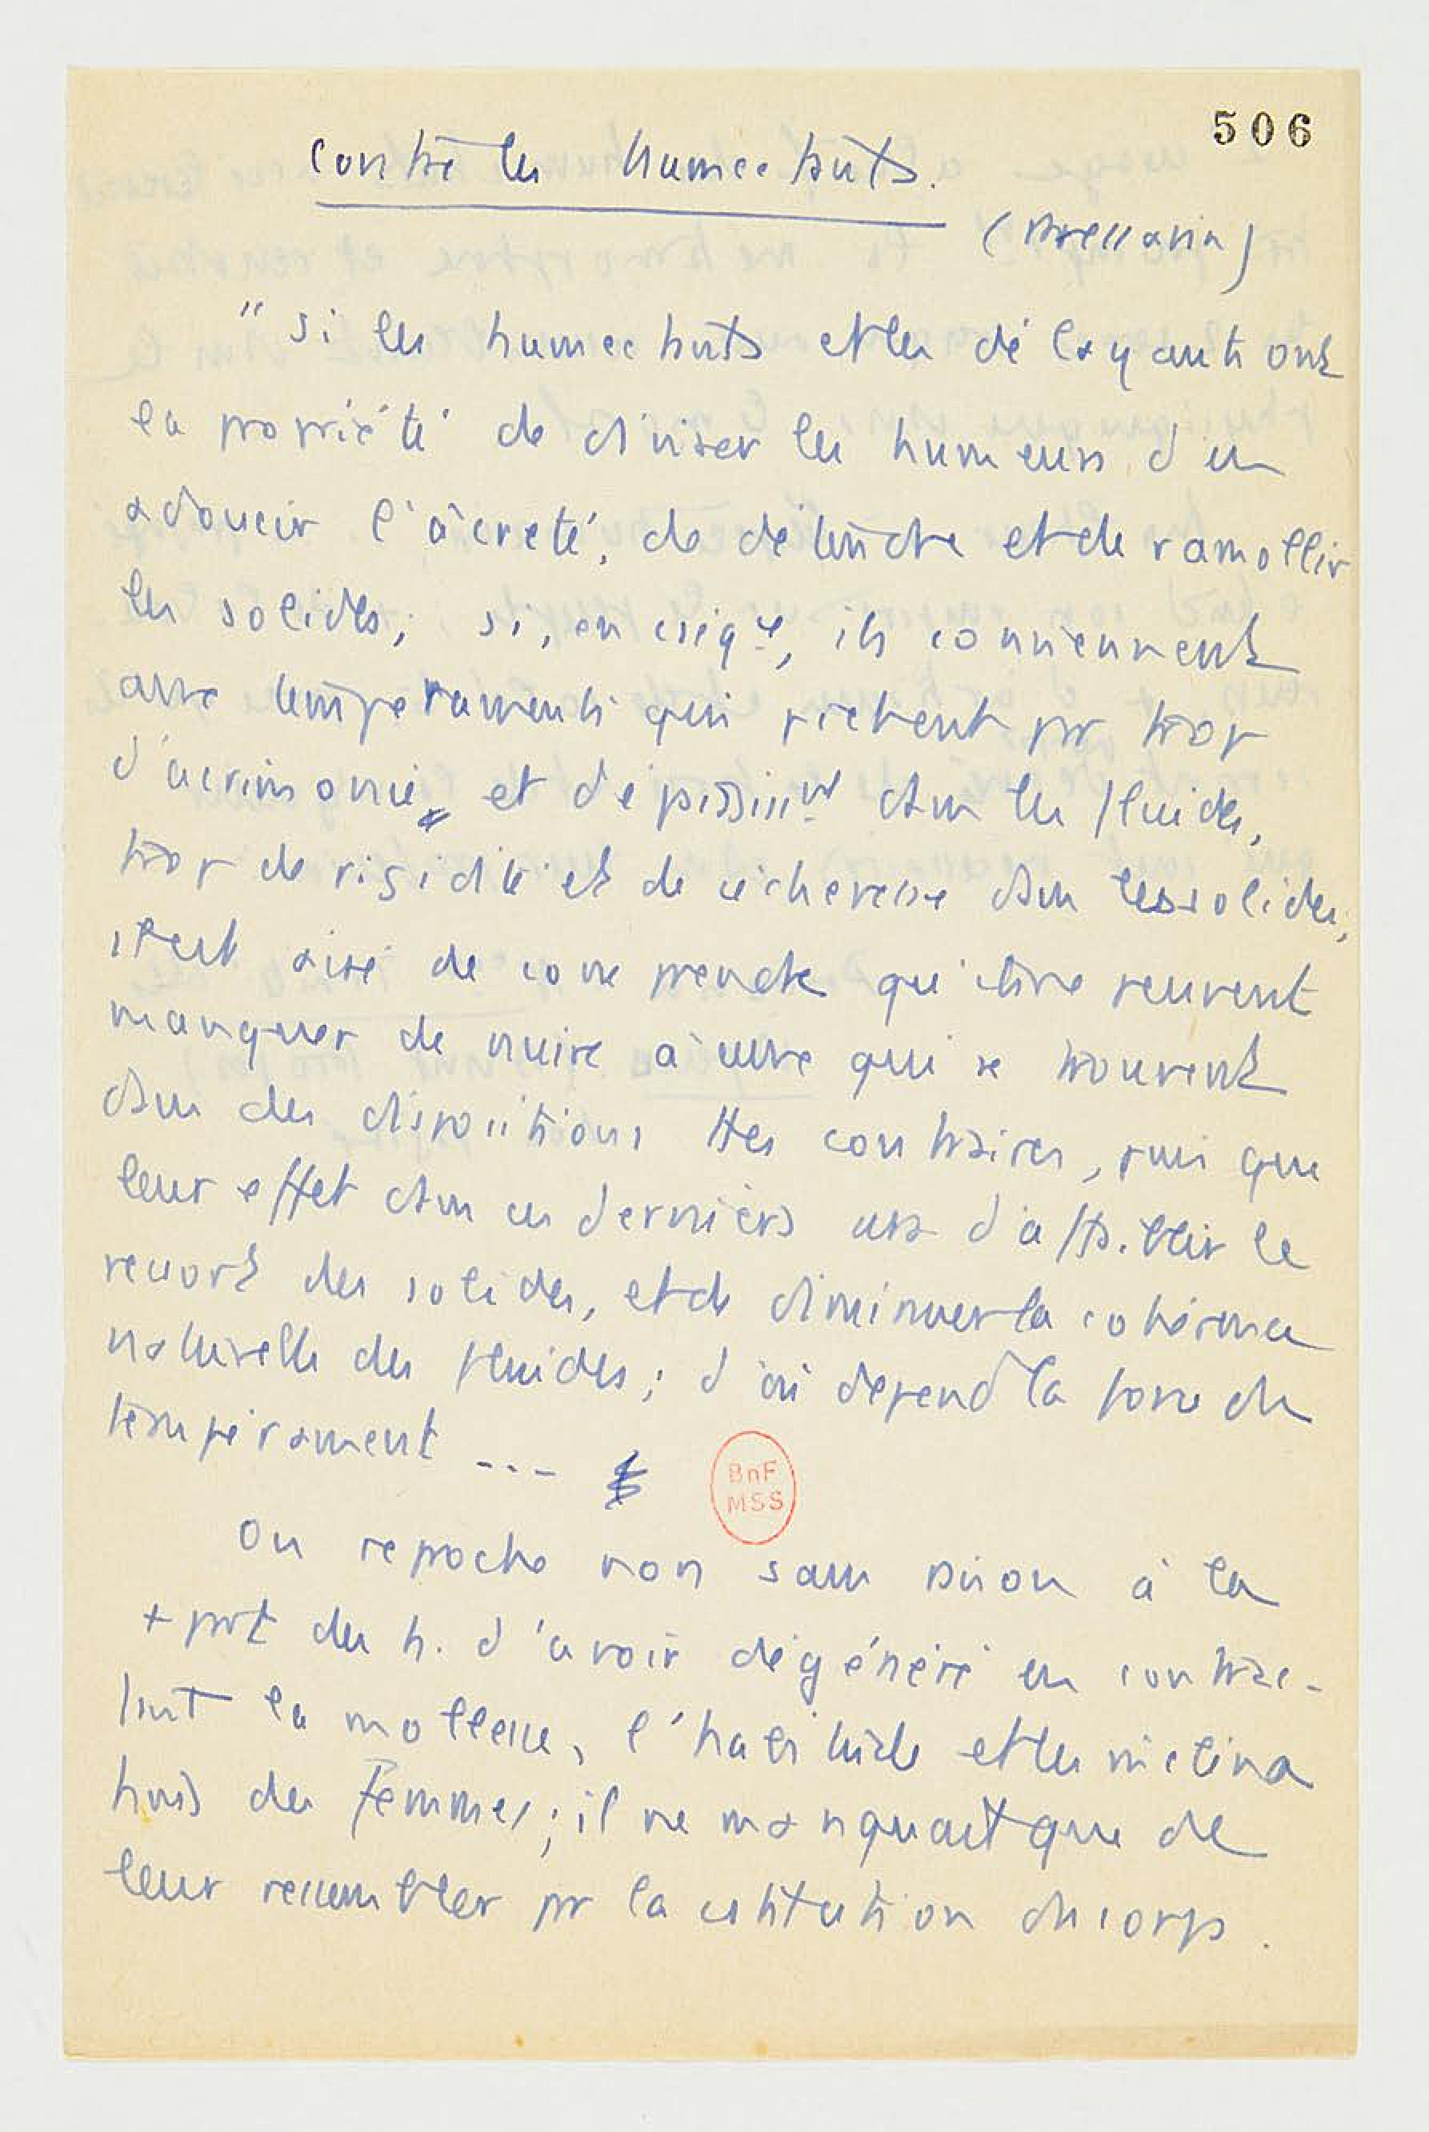 506
Contre les humectants.
(Pressavin)
" Si les humectants et les délayants ont
la propriété de diviser les humeurs d'en
adoucir l'âcreté, de détendre et de ramollir
les solides; si, en cséqce, ils conviennent
aux tempéraments qui pèchent par trop
d'acrimonie, et d'épaississt dans les fluides,
trop de rigidité et de sécheresse dans les solides,
il est aisé de comprendre qu'ils ne peuvent
manquer de nuire à ceux qui se trouvent
dans des dispositions ttes contraires, puisque
leur effet dans ces derniers est d'affaiblir le
ressort des solides, et de diminuer la cohérence
naturelle des fluides; d'où dépend la force du
tempérament ---
BnF
MSS
On reproche non sans raison à la
+ part des h. d'avoir dégénéré en contrac-
tant la mollesse, l'habitude et les inclina
tions des femmes; il ne manquait que de
leur ressembler par la cstitution du corps.